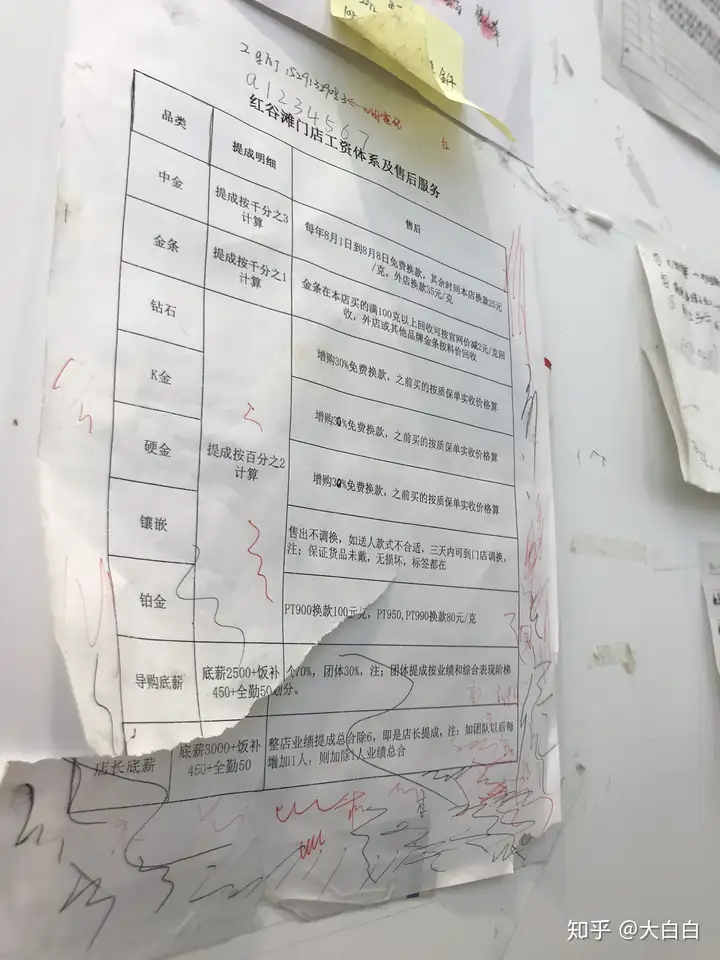 a1234567
红谷滩门店工资体系及售后服务
品类
提成明细
售后
中金
提成按千分之3
计算
每年8月1日到8月8日免费换款，其余时间本店换款25元
/克，外店换款35元/克
金条
提成按千分之1
计算
金条在本店买的满100克以上回收可按官网价减2元/克回
收，外店或其他品牌金条按料价回收
钻石
增购30%免费换款，之前买的按质保单实收价格算
K金
增购30%免费换款，之前买的按质保单实收价格算
硬金
提成按百分之2
计算
增购30%免费换款，之前买的按质保单实收价格算
镶嵌
售出不调换，如送人款式不合适，三天内可到门店调换，
注；保证货品未戴，无损坏，标签都在
铂金
PT900换款100元/克，PT950,PT990换款80元/克
导购底薪
底薪2500+饭补
450+全勤50
70%，团体30%，注；团体提成按业绩和综合表现阶梯
分。
店长底薪
底薪3000+饭补
450+全勤50
整店业绩提成总合除6，即是店长提成，注：如团队以后每
增加1人，则加除1人业绩总合
知乎 @大白白